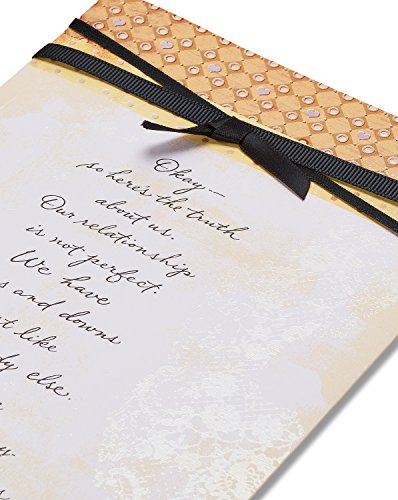 Okay—
so here's the truth
about us.
Our relationship
is not perfect.
We have
and downs
like
else.